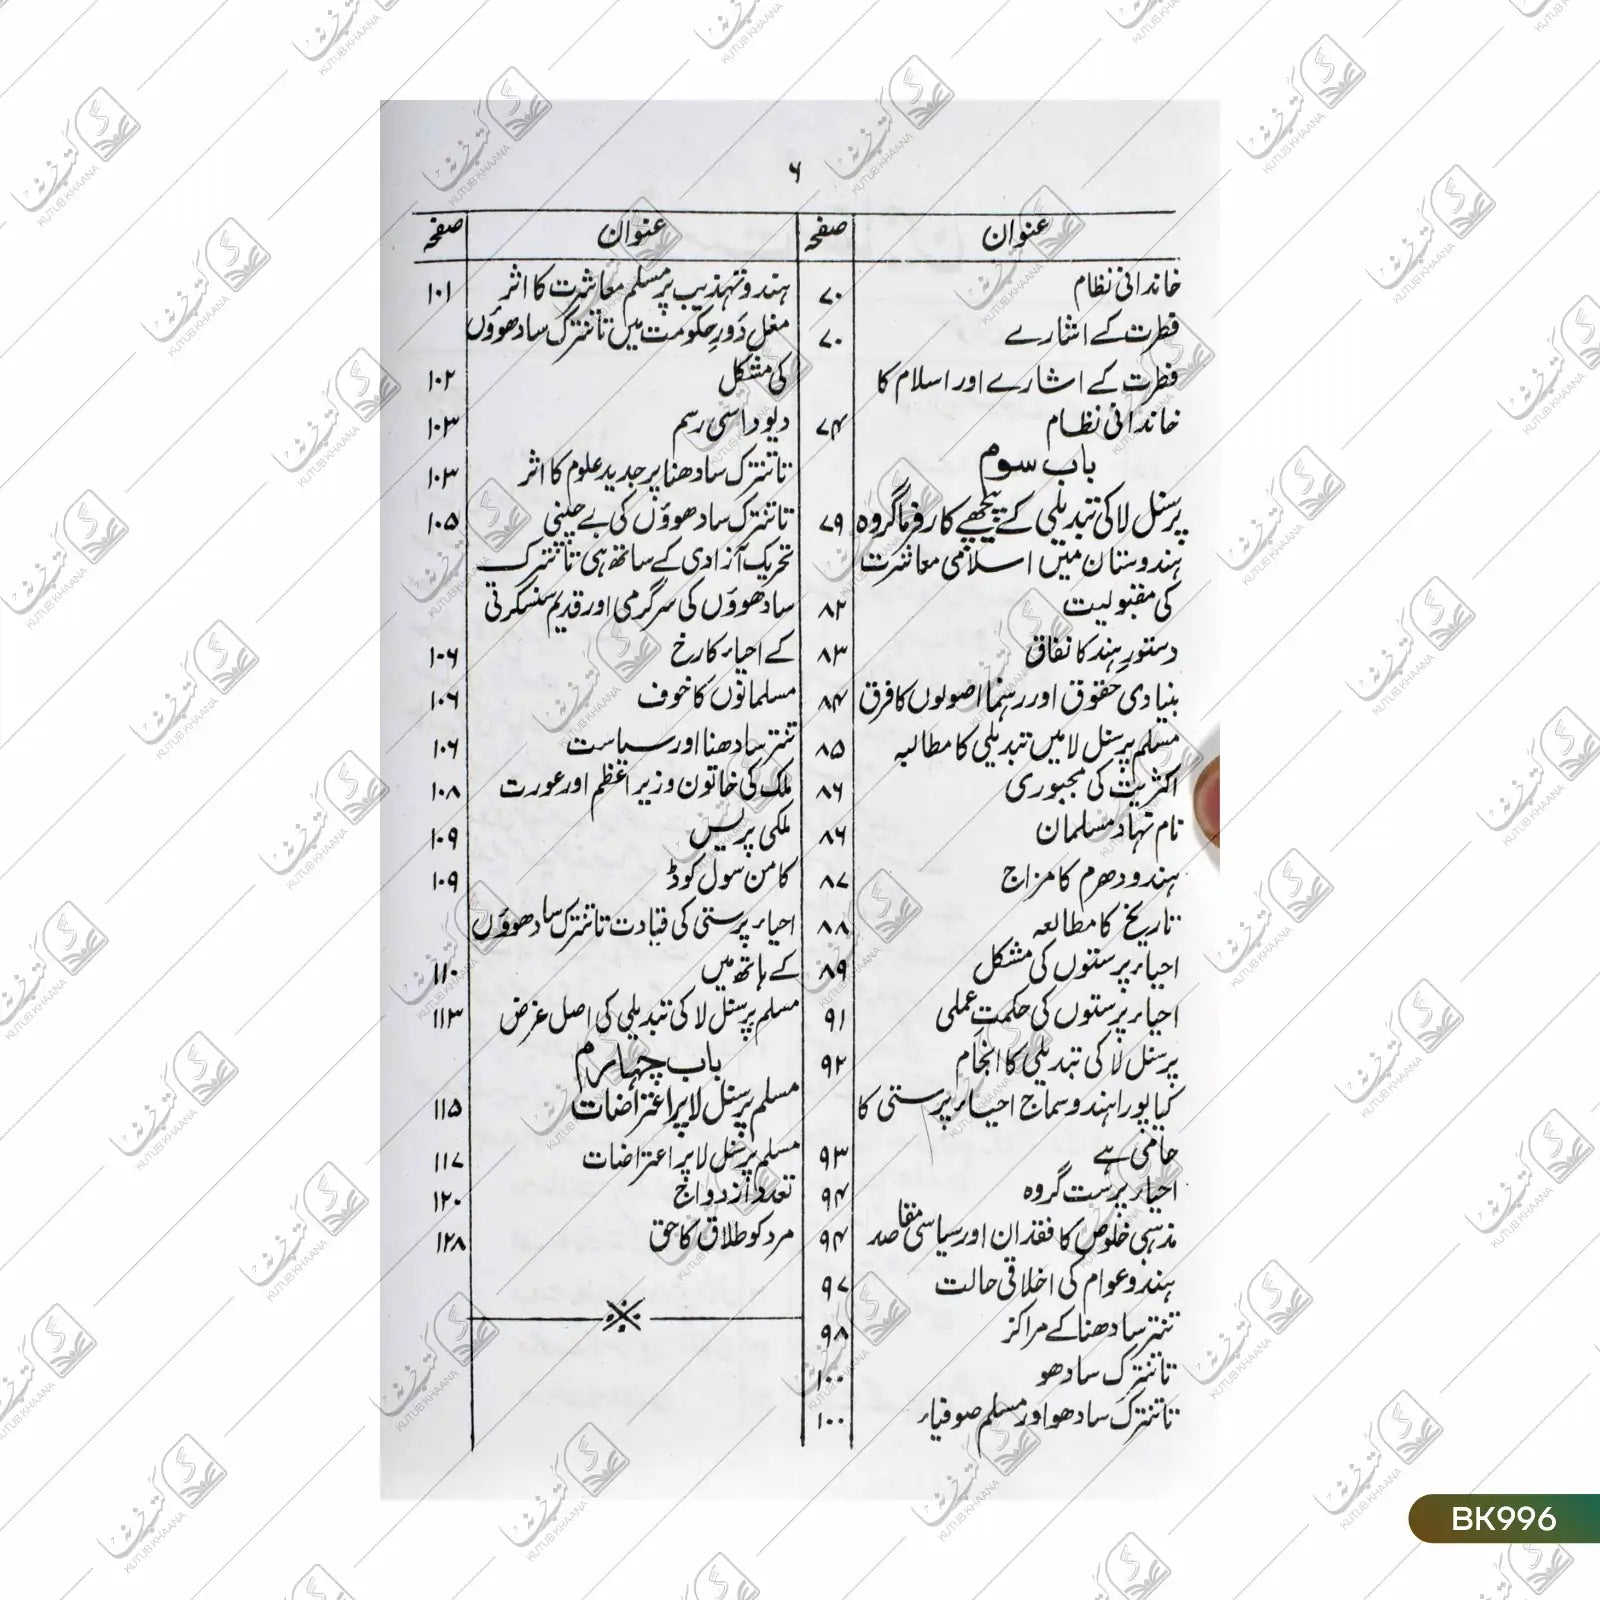 ۶
عنوان صفحہ
خاندانی نظام ۷۰
فطرت کے اشارے ۷۰
فطرت کے اشارے اور اسلام کا
خاندانی نظام ۷۴
باب سوم
پرسنل لا کی تبدیلی کے پیچھے کارفرما گروہ ۷۹
ہندوستان میں اسلامی معاشرت
کی مقبولیت ۸۲
دستور ہند کا نفاق ۸۳
بنیادی حقوق اور رہنما اصولوں کا فرق ۸۴
مسلم پرسنل لا میں تبدیلی کا مطالبہ ۸۵
اکثریت کی مجبوری ۸۶
نام نہاد مسلمان ۸۶
ہندو دھرم کا مزاج ۸۷
تاریخ کا مطالعہ ۸۸
احیاء پرستوں کی مشکل ۸۹
احیاء پرستوں کی حکمت عملی ۹۱
پرسنل لا کی تبدیلی کا انجام ۹۲
کیا پورا ہندو سماج احیاء پرستی کا
حامی ہے ۹۳
احیاء پرست گروہ ۹۴
مذہبی خلوص کا فقدان اور سیاسی مقاصد ۹۴
ہندو عوام کی اخلاقی حالت ۹۷
تنتر سادھنا کے مراکز ۹۸
تانترک سادھو ۱۰۰
تانترک سادھو اور مسلم صوفیاء ۱۰۰
عنوان صفحہ
ہندو تہذیب پر مسلم معاشرت کا اثر ۱۰۱
مغل دَورِ حکومت میں تانترک سادھوؤں
کی مشکل ۱۰۲
دیوداسی رسم ۱۰۳
تانترک سادھنا پر جدید علوم کا اثر ۱۰۳
تانترک سادھوؤں کی بے چینی ۱۰۵
تحریک آزادی کے ساتھ ہی تانترک
سادھوؤں کی سرگرمی اور قدیم سنسکرتی
کے احیاء کا رخ ۱۰۶
مسلمانوں کا خوف ۱۰۶
تنتر سادھنا اور سیاست ۱۰۶
ملک کی خاتون وزیر اعظم اور عورت ۱۰۸
ملکی پریس ۱۰۹
کامن سول کوڈ ۱۰۹
احیاء پرستی کی قیادت تانترک سادھوؤں
کے ہاتھ میں ۱۱۰
مسلم پرسنل لا کی تبدیلی کی اصل غرض ۱۱۳
باب چہارم
مسلم پرسنل لا پر اعتراضات ۱۱۵
مسلم پرسنل لا پر اعتراضات ۱۱۷
تعدد ازدواج ۱۲۰
مرد کو طلاق کا حق ۱۲۸
BK996
KUTUB KHAANA